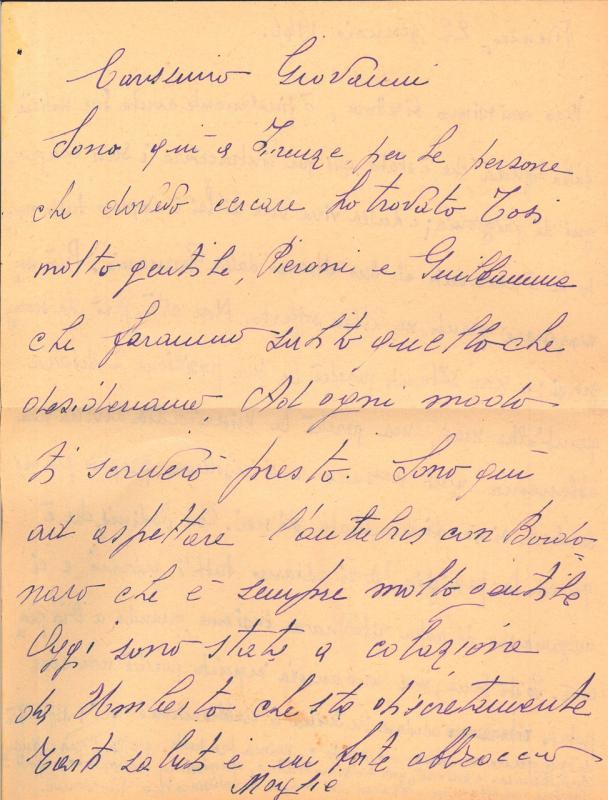 Carissimo Giovanni
Sono qui a Firenze, per le persone
che dovevo cercare ho trovato Tosi
molto gentile, Pieroni e Guillaume
che faranno subito quello che
desideriamo, Ad ogni modo
ti scriverò presto. Sono qui
ad aspettare l'autubus con Bordo-
naro che è sempre molto gentile
Oggi sono stata a colazione
da Umberto che sta discretamente
Tanti saluti e un forte abbraccio